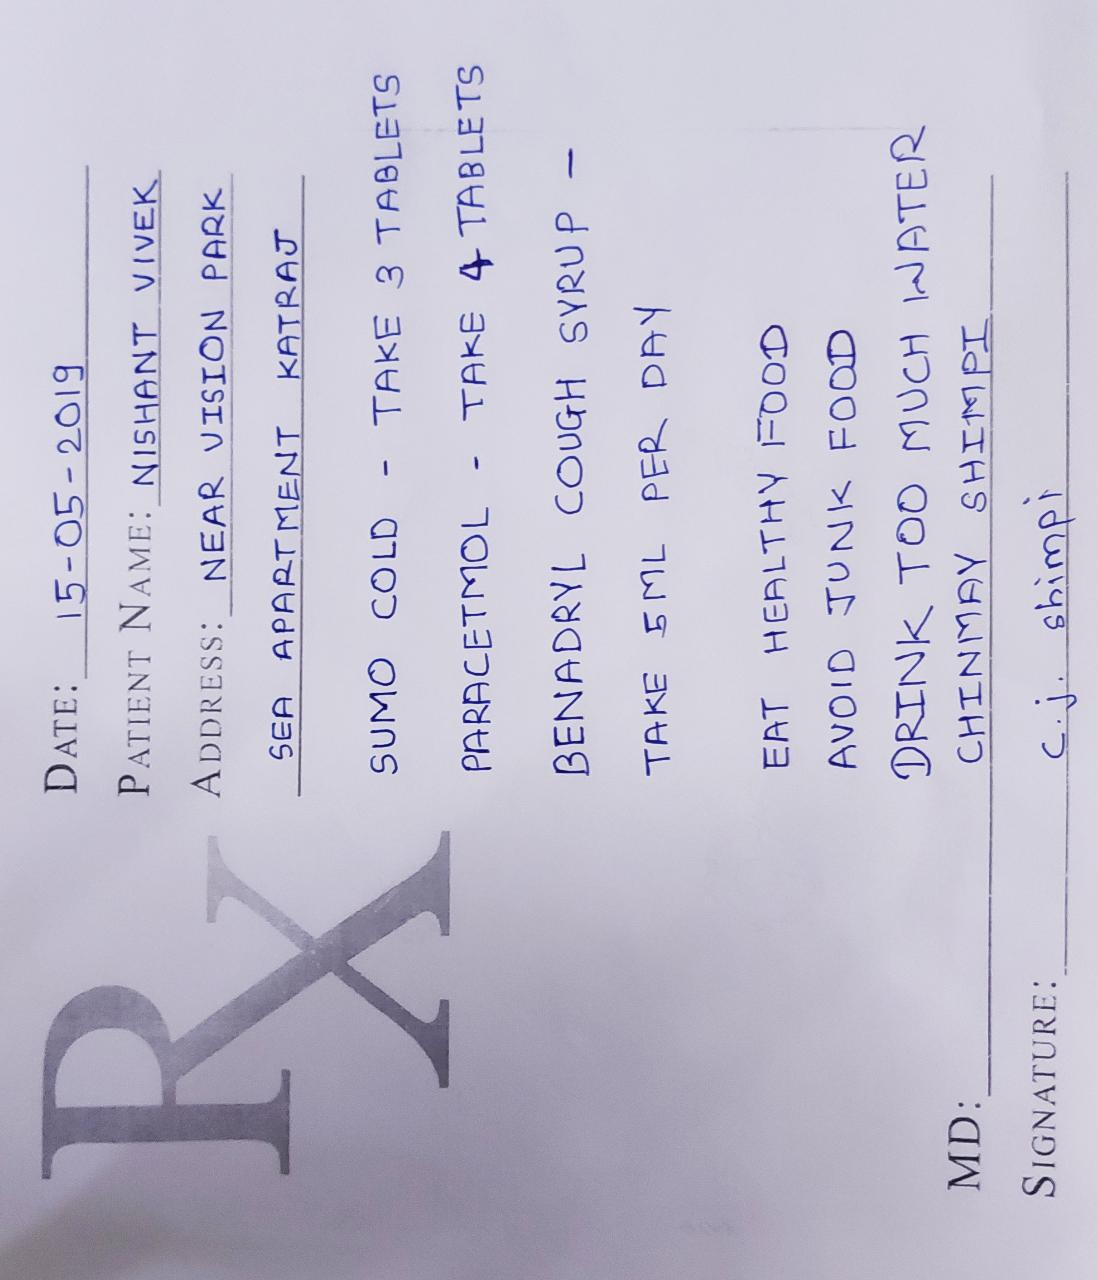 RX
DATE: 15-05-2019
PATIENT NAME: NISHANT VIVEK
ADDRESS: NEAR VISION PARK
SEA APARTMENT KATRAJ
SUMO COLD - TAKE 3 TABLETS
PARACETMOL - TAKE 4 TABLETS
BENADRYL COUGH SYRUP -
TAKE 5 ML PER DAY
EAT HEALTHY FOOD
AVOID JUNK FOOD
DRINK TOO MUCH WATER
MD: CHINMAY SHIMPI
SIGNATURE: c.j. shimpi